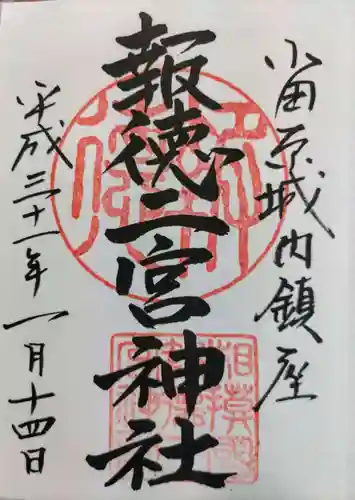 小田原城内鎮座
報徳二宮神社
平成三十一年一月十四日